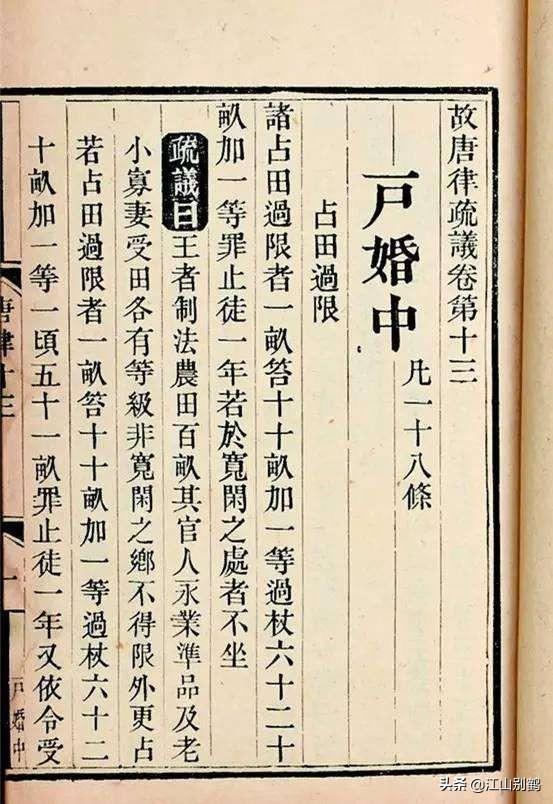 故唐律疏議卷第十三
戶婚中 凡一十八條
占田過限
諸占田過限者一畝笞十十畝加一等過杖六十二十
畝加一等罪止徒一年若於寬閑之處者不坐
疏議曰王者制法農田百畝其官人永業準品及老
小寡妻受田各有等級非寬閑之鄉不得限外更占
若占田過限者一畝笞十十畝加一等過杖六十二
十畝加一等一頃五十一畝罪止徒一年又依令受
唐律十三
一
戶婚中
头条 @江山别鹤